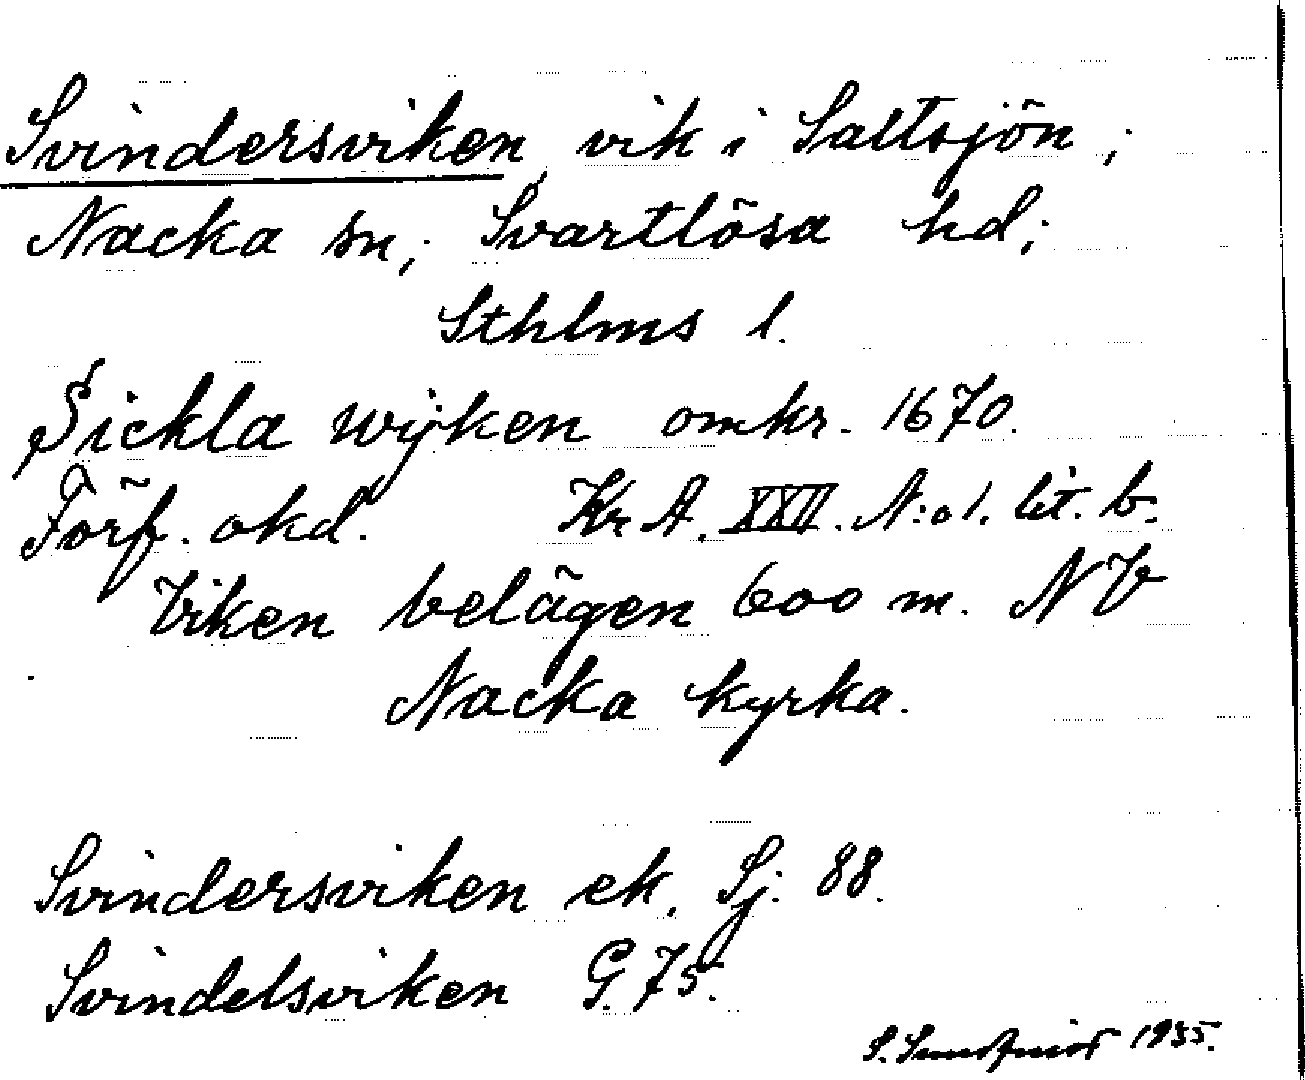 Svindersviken, vik i Saltsjön;
Nacka sn; Svartlösa hd;
Sthlms l.
Sickla wijken omkr. 1670.
Förf. okd. Kr A. XXII. N:o 1. lit. b.
Viken belägen 600 m. NV
Nacka kyrka.
Svindersviken ek. Sj. 88.
Svindelsviken G. 75.
S. 1935.